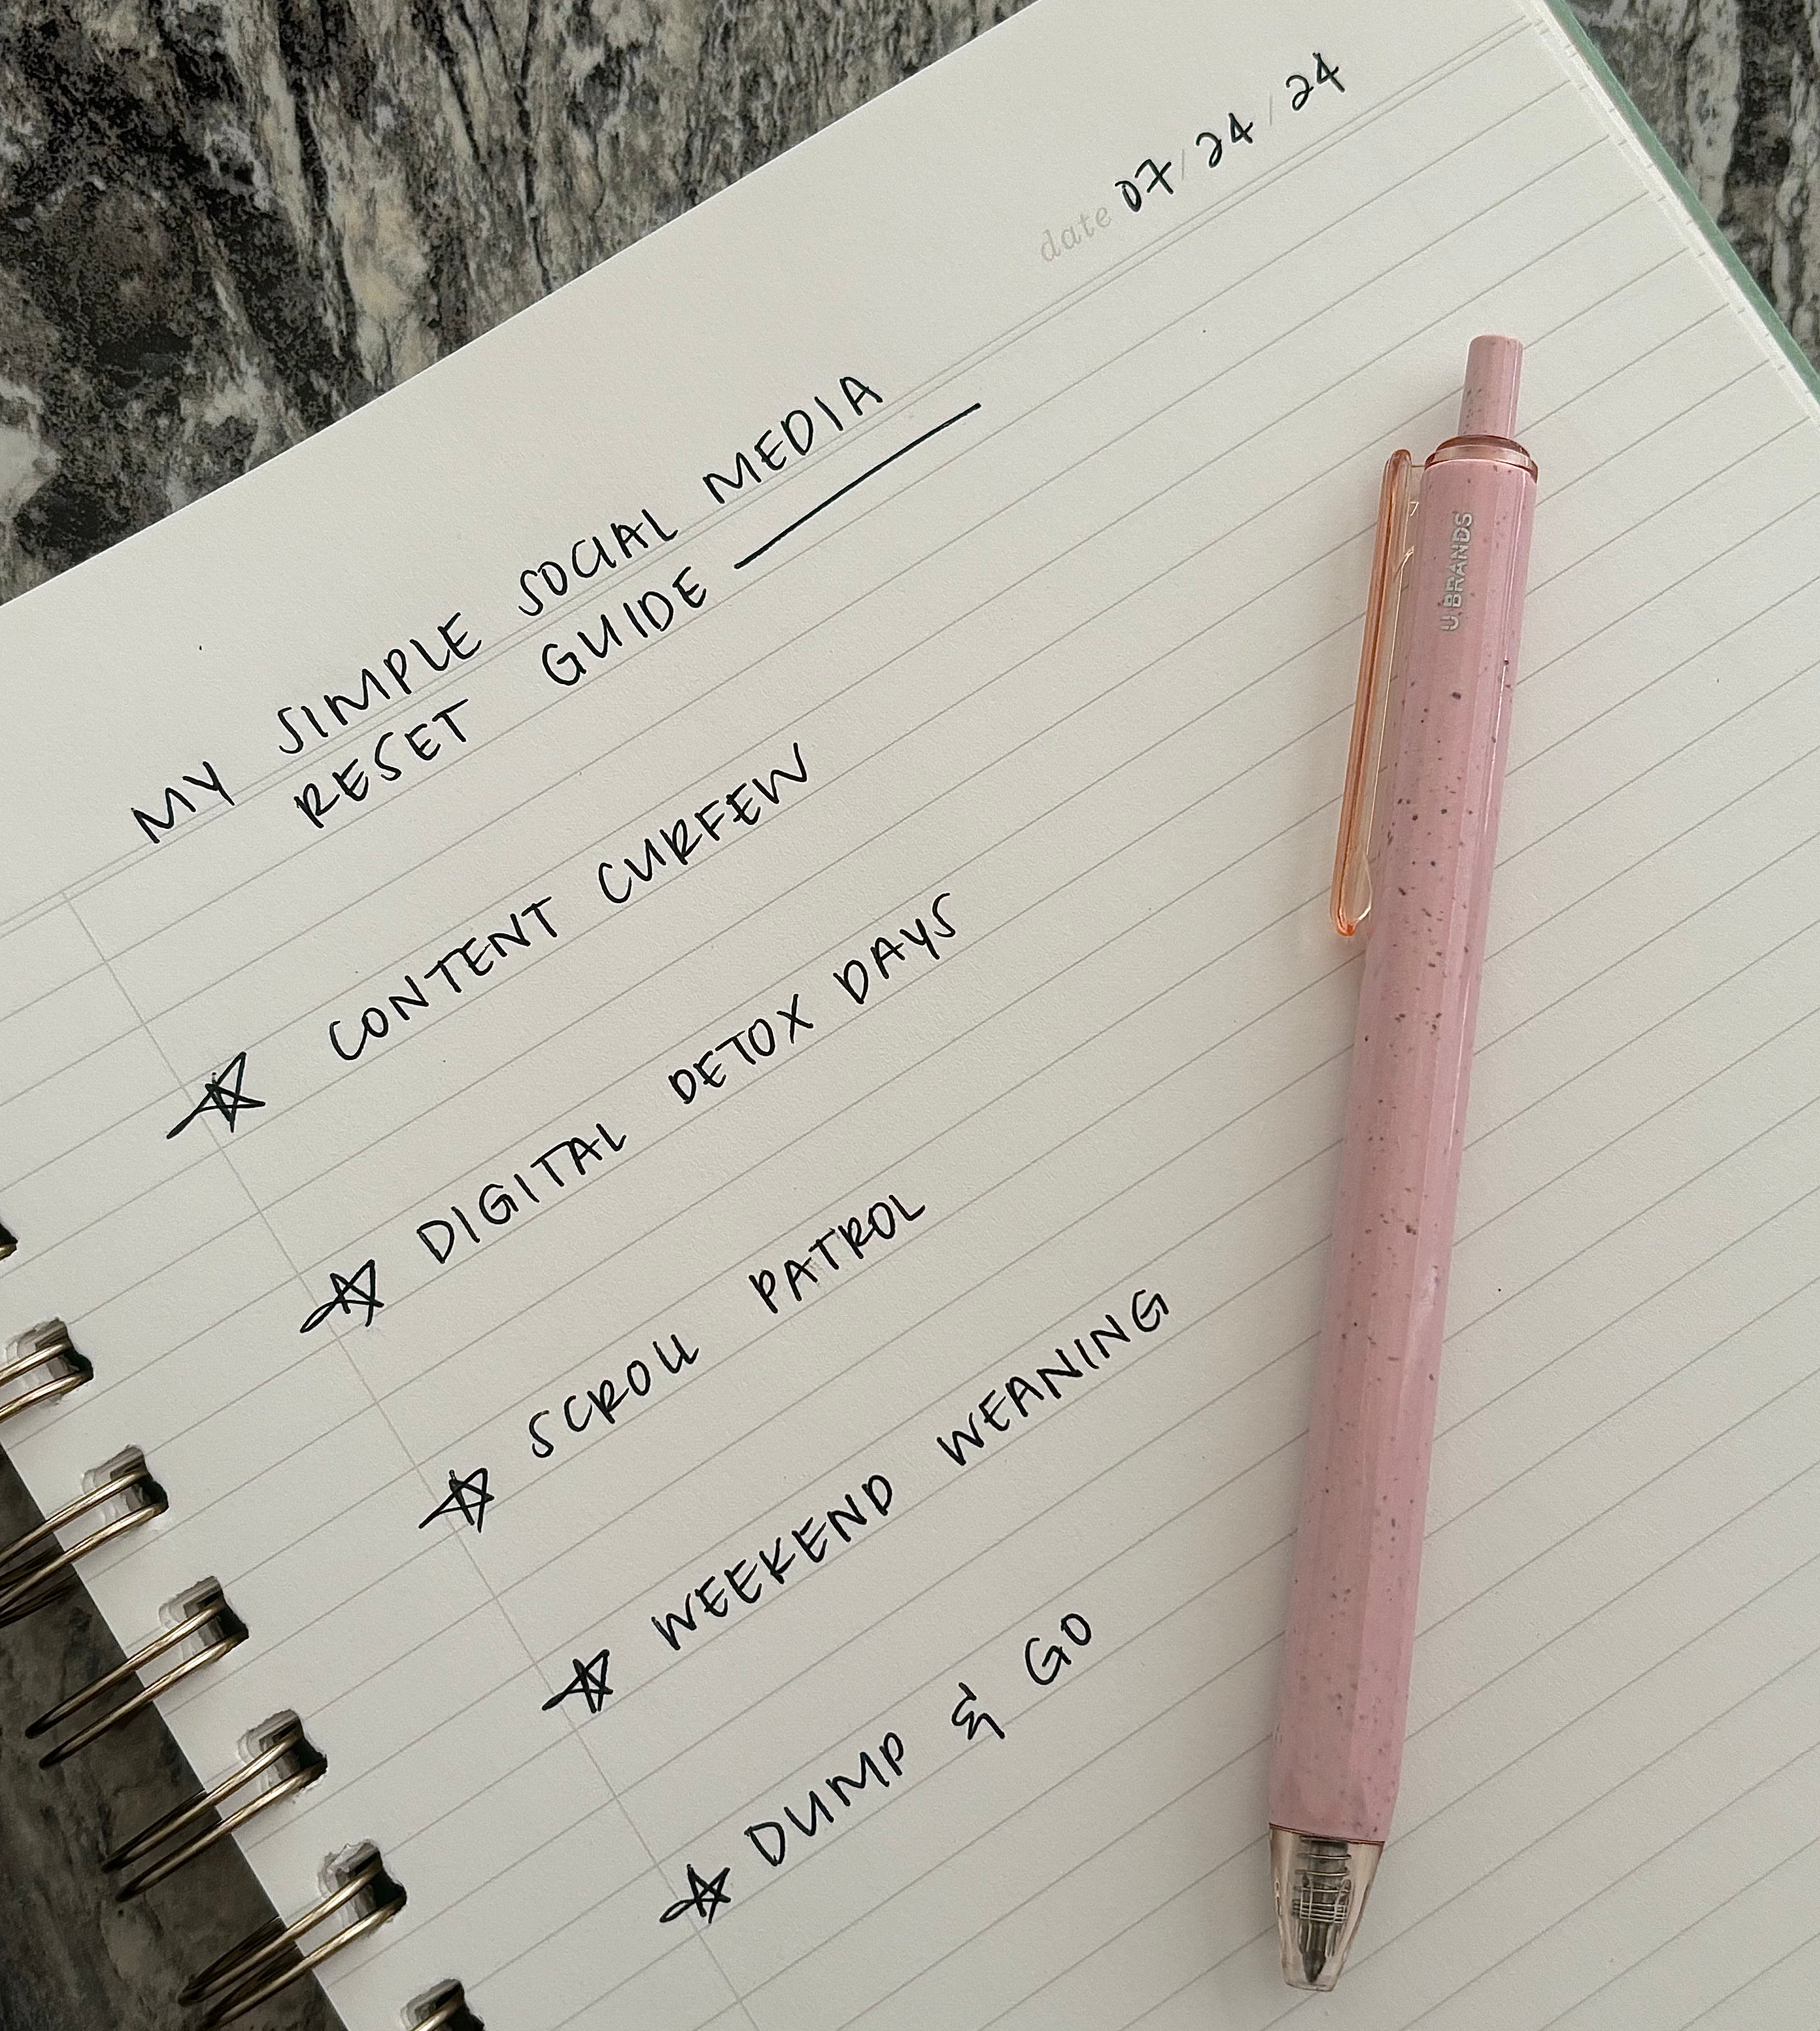 date 07/24/24
MY SIMPLE SOCIAL MEDIA
RESET GUIDE
☆ CONTENT CURFEW
☆ DIGITAL DETOX DAYS
☆ SCROLL PATROL
☆ WEEKEND WEANING
☆ DUMP & GO
U BRANDS